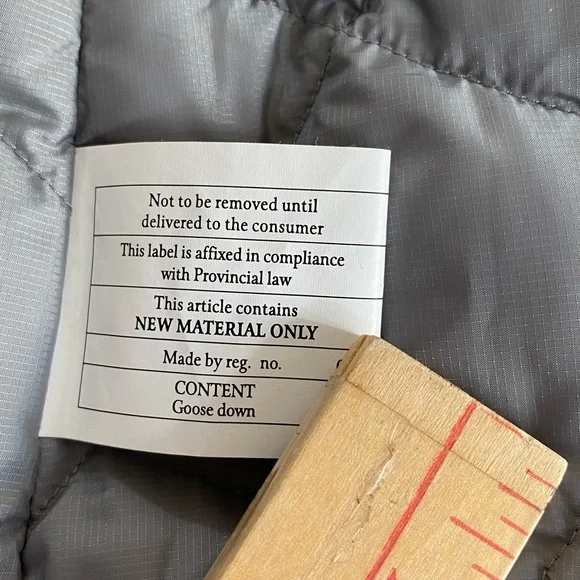 Not to be removed until
delivered to the consumer
This label is affixed in compliance
with Provincial law
This article contains
NEW MATERIAL ONLY
Made by reg. no.
CONTENT
Goose down